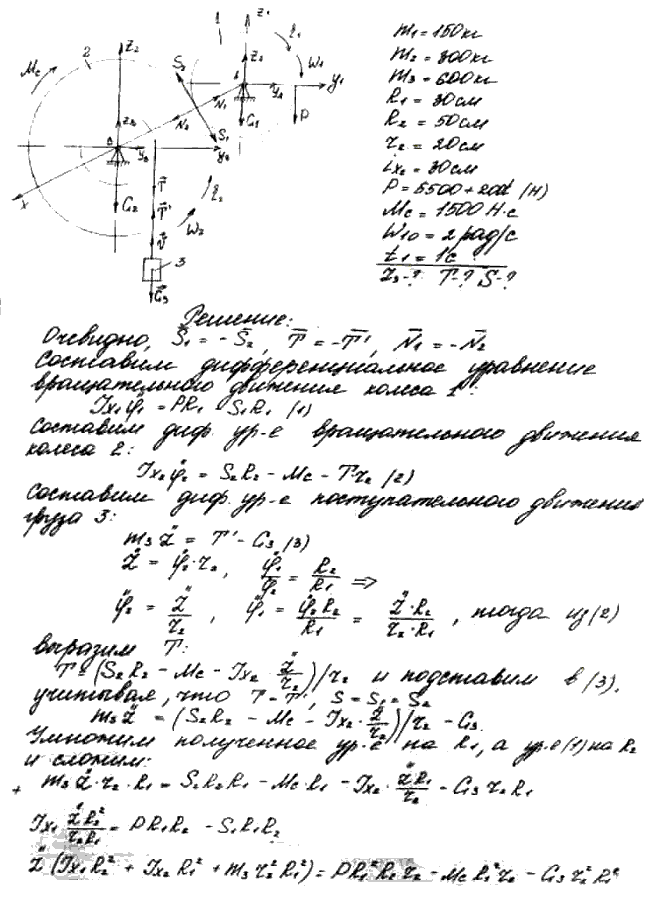 z₁
1
ε₁
2
z₂
Mc
S₂
z₃
W₁
y₁
A
yA
N₁
N₂
S₁
G₁
P
zB
B
yB
y₂
x
G₂
T̄
T̄'
ε₂
W₂
3
Ḡ₃
m₁ = 150кг
m₂ = 300кг
m₃ = 600кг
R₁ = 30см
R₂ = 50см
r₂ = 20см
ix₂ = 30см
P = 5500 + 200t (Н)
Mc = 1500 Н·с
W₁₀ = 2 рад/с
t₁ = 1с
Z₃-? T-? S-?
Решение:
Очевидно, S̄₁ = -S̄₂, T̄ = -T̄', N̄₁ = -N̄₂
Составим дифференциальное уравнение
вращательного движения колеса 1:
Jx₁φ̈₁ = PR₁ S₁R₁ (1)
Составим диф. ур-е вращательного движения
колеса 2:
Jx₂φ̈₂ = S₂R₂ - Mc - T·r₂ (2)
Составим диф ур-е поступательного движения
груза 3:
m₃z̈ = T' - G₃ (3)
z̈ = φ̈₂·r₂, φ̈₁/φ̈₂ = R₂/R₁ =>
φ̈₂ = z̈/r₂, φ̈₁ = φ̈₂R₂/R₁ = z̈·R₂/r₂·R₁, тогда из (2)
выразим T:
T = (S₂R₂ - Mc - Jx₂·z̈/r₂)/r₂ и подставим в (3),
учитывая, что T = T', S = S₁ = S₂
m₃z̈ = (S₂R₂ - Mc - Jx₂·z̈/r₂)/r₂ - G₃
Умножим полученное ур-е на R₁, а ур-е (1) на R₂
и сложим:
+ m₃z̈·r₂·R₁ = S₂R₂R₁ - Mc·R₁ - Jx₂·z̈R₁/r₂ - G₃r₂R₁
Jx₁ z̈R₂²/r₂R₁ = PR₁R₂ - S₁R₁R₂
z̈(Jx₁R₂² + Jx₂R₁² + m₃r₂²R₁²) = PR₁²R₂r₂ - McR₁²r₂ - G₃r₂²R₁²